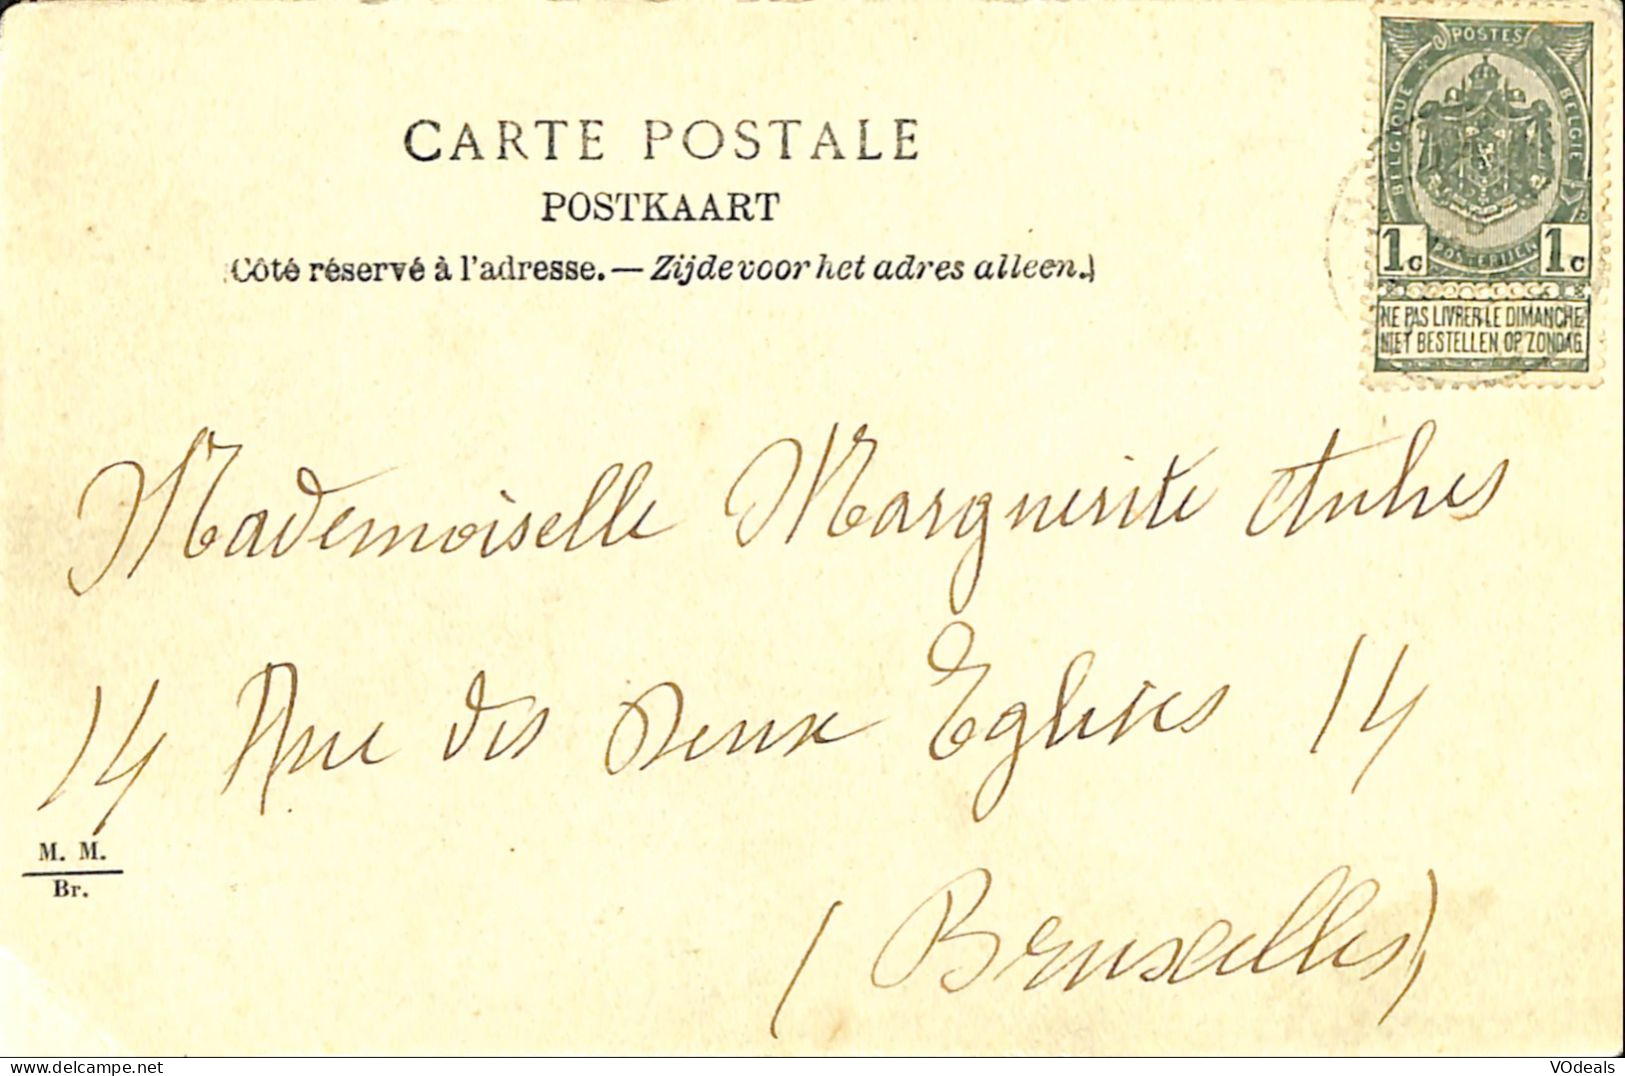 CARTE POSTALE
POSTKAART
(Côté réservé à l'adresse. — Zijde voor het adres alleen.)
POSTES
BELGIQUE
BELGIE
POSTERIJEN
1c 1c
NE PAS LIVRER LE DIMANCHE
NIET BESTELLEN OP ZONDAG
Mademoiselle Marguerite
14 Rue des Deux Eglises 14
M. M.
Br.
(Bruxelles)
VOdeals